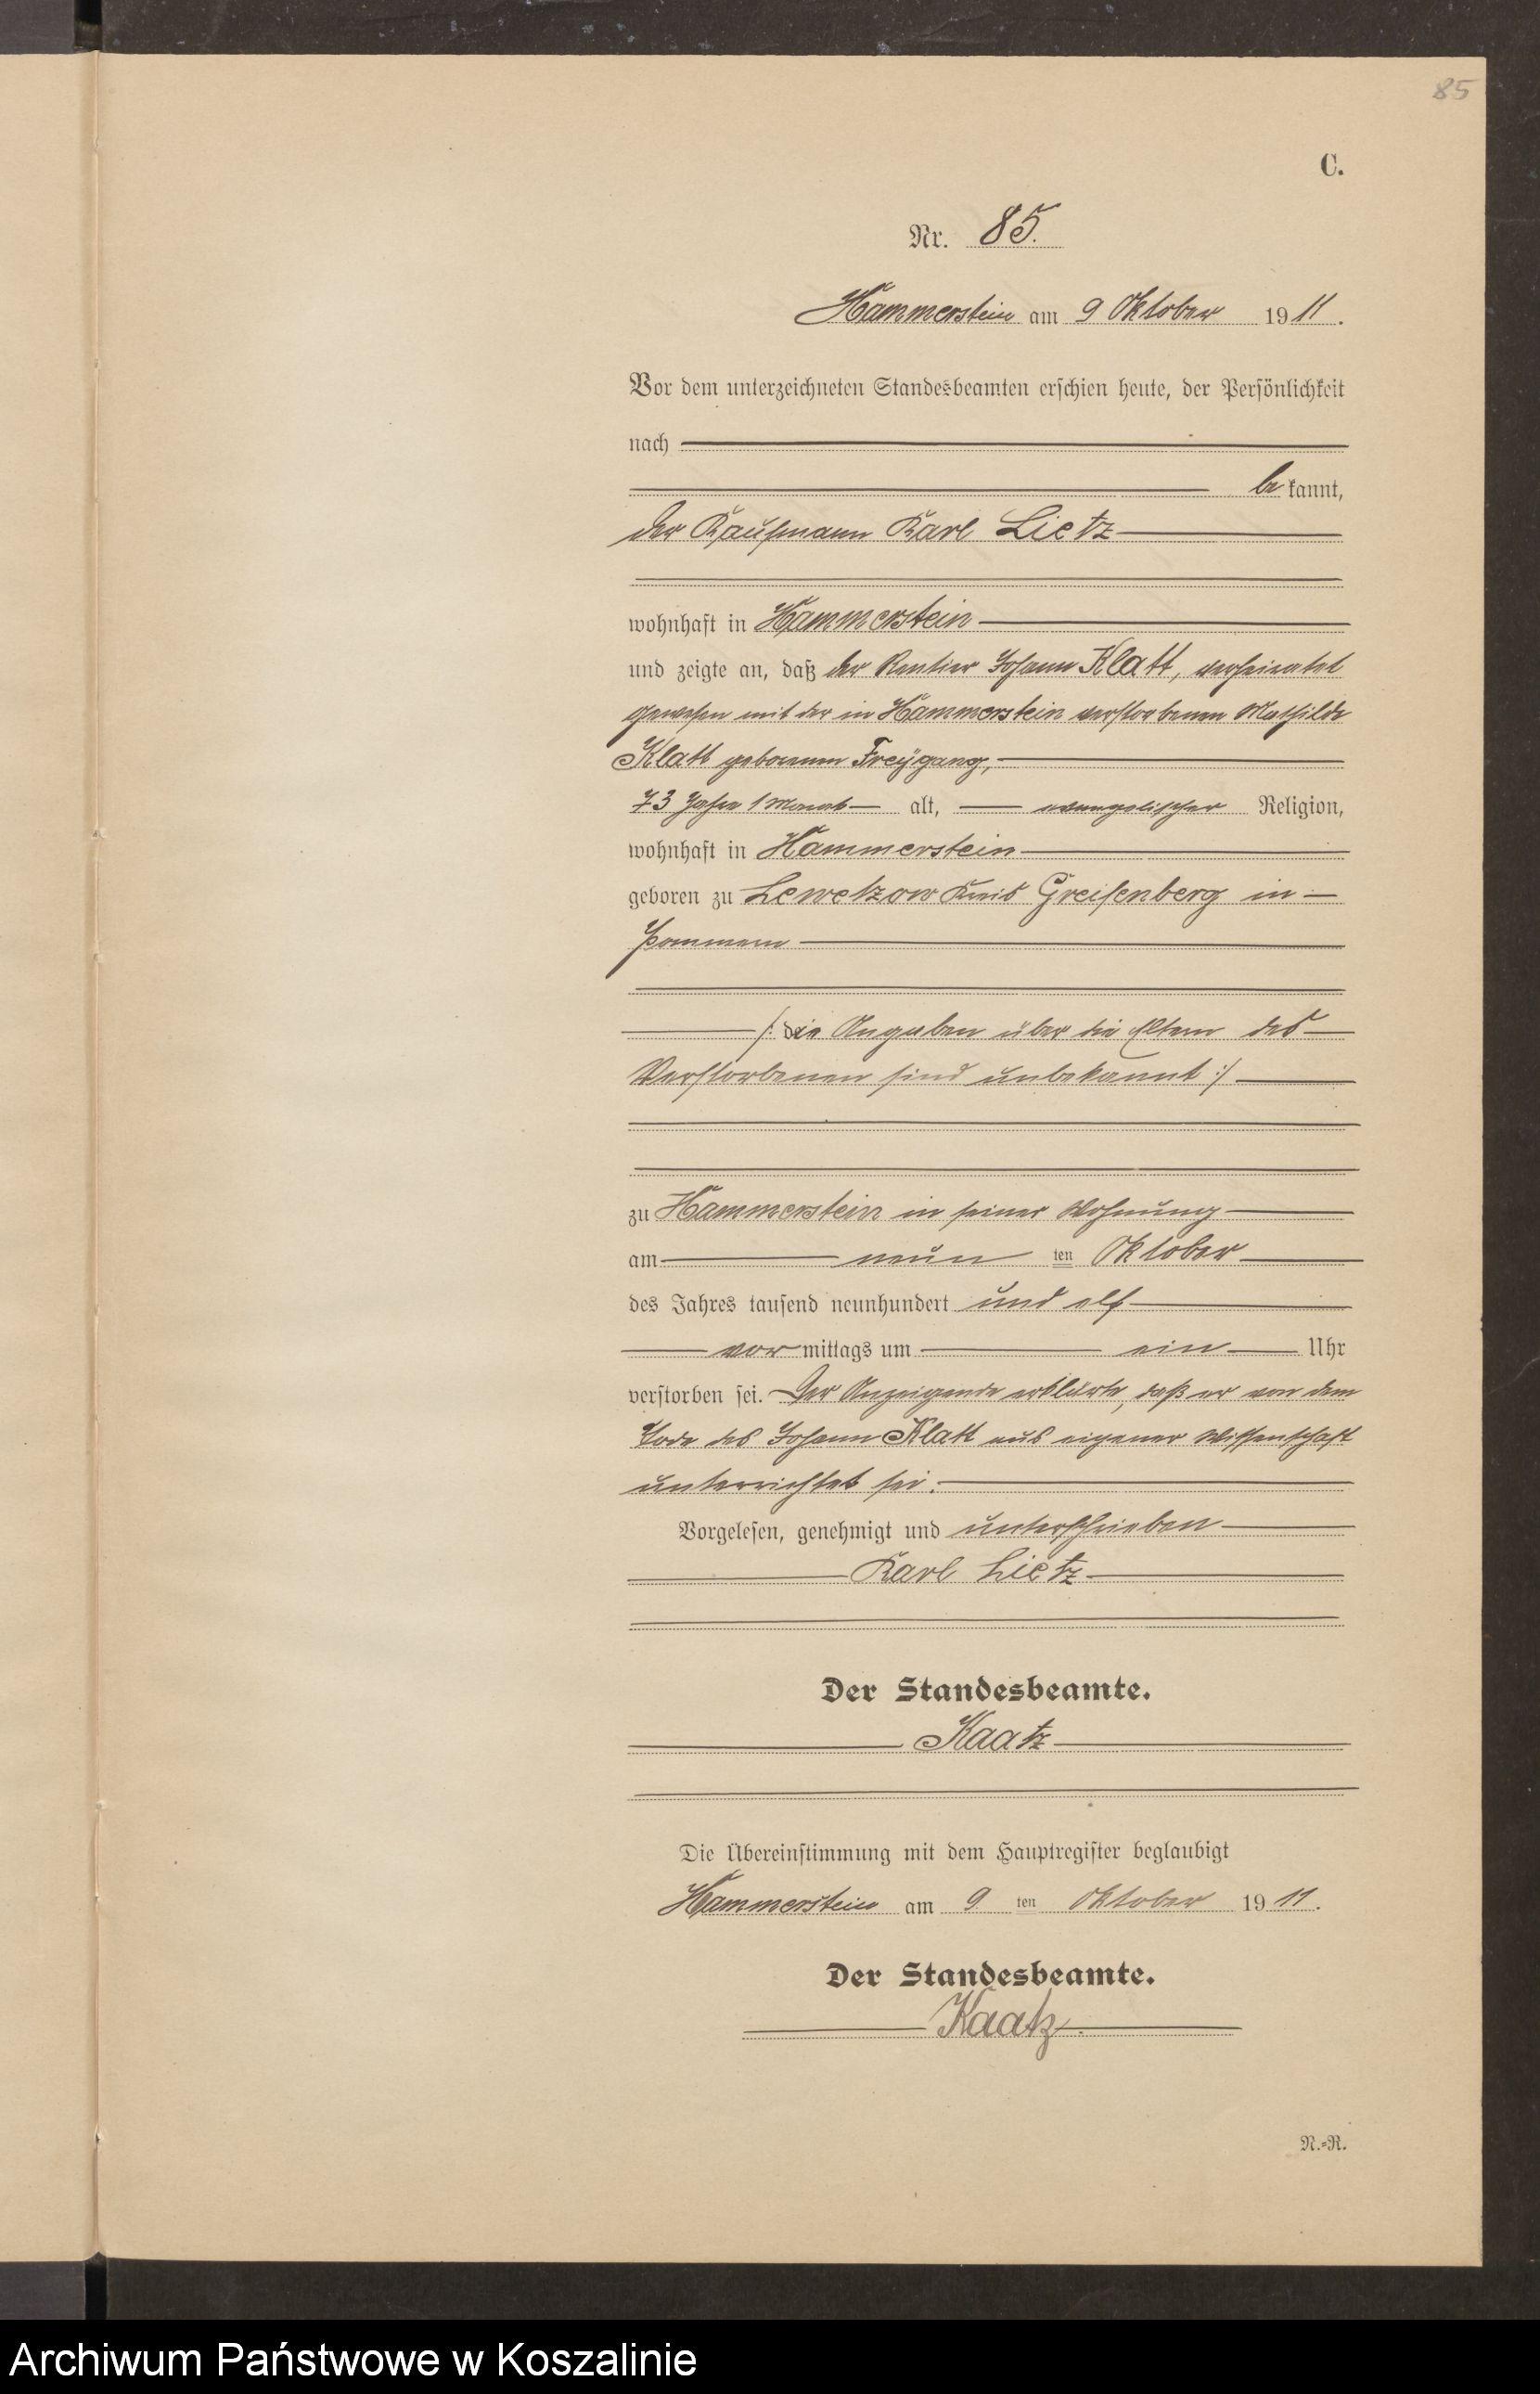 85
C.
Nr. 85.
Hammerstein am 9 Oktober 1911.
Vor dem unterzeichneten Standesbeamten erschien heute, der Persönlichkeit
nach
bekannt,
der Kaufmann Karl Lietz
wohnhaft in Hammerstein
und zeigte an, daß der Rentier Johann Klatt, verheiratet
gewesen mit der in Hammerstein verstorbenen Mathilde
Klatt geborenen Freÿgang,
73 Jahre 1 Monat alt, evangelischer Religion,
wohnhaft in Hammerstein
geboren zu Lewetzow Kreis Greifenberg in
Pommern
/: die Angaben über die Eltern des
Verstorbenen sind unbekannt :/
zu Hammerstein in seiner Wohnung
am neun ten Oktober
des Jahres tausend neunhundert und elf
vormittags um ein Uhr
verstorben sei. Der Anzeigende erklärte, daß er von dem
Tode des Johann Klatt aus eigener Wissenschaft
unterrichtet sei.
Vorgelesen, genehmigt und unterschrieben
Karl Lietz
Der Standesbeamte.
Kaatz
Die Übereinstimmung mit dem Hauptregister beglaubigt
Hammerstein am 9. ten Oktober 1911.
Der Standesbeamte.
Kaatz.
N.-R.
Archiwum Państwowe w Koszalinie